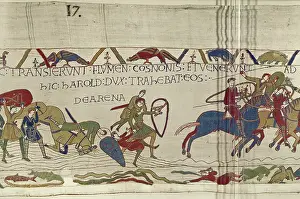 17.
C: TRANSIERVNT FLVMEN COSNONIS ET VENERVNT AD
HIC hAROLD: DVX: TRAhEBAT: EOS:
DE ARENA